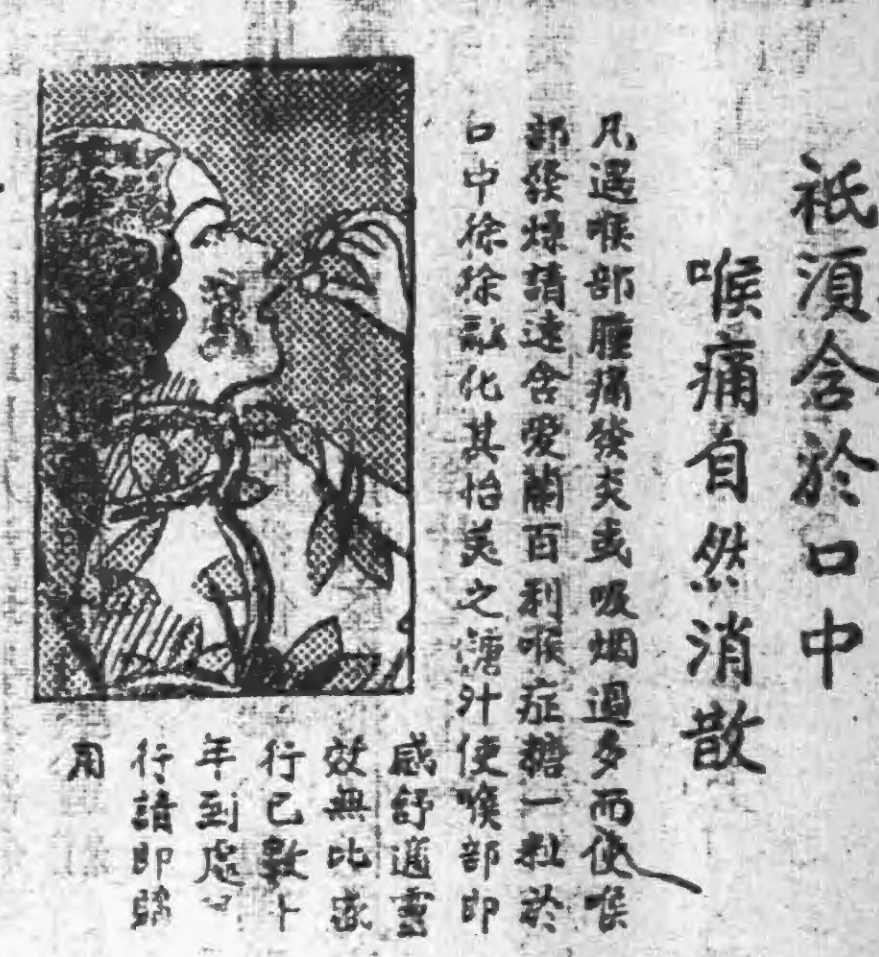 祇須含於口中
喉痛自然消散
凡遇喉部腫痛發炎或吸烟過多而使喉
部發燥請速含愛蘭百利喉症糖一粒於
口中徐徐融化其怡美之糖汁使喉部即
感舒適靈
效無比盛
行已數十
年到處
行請即購
用